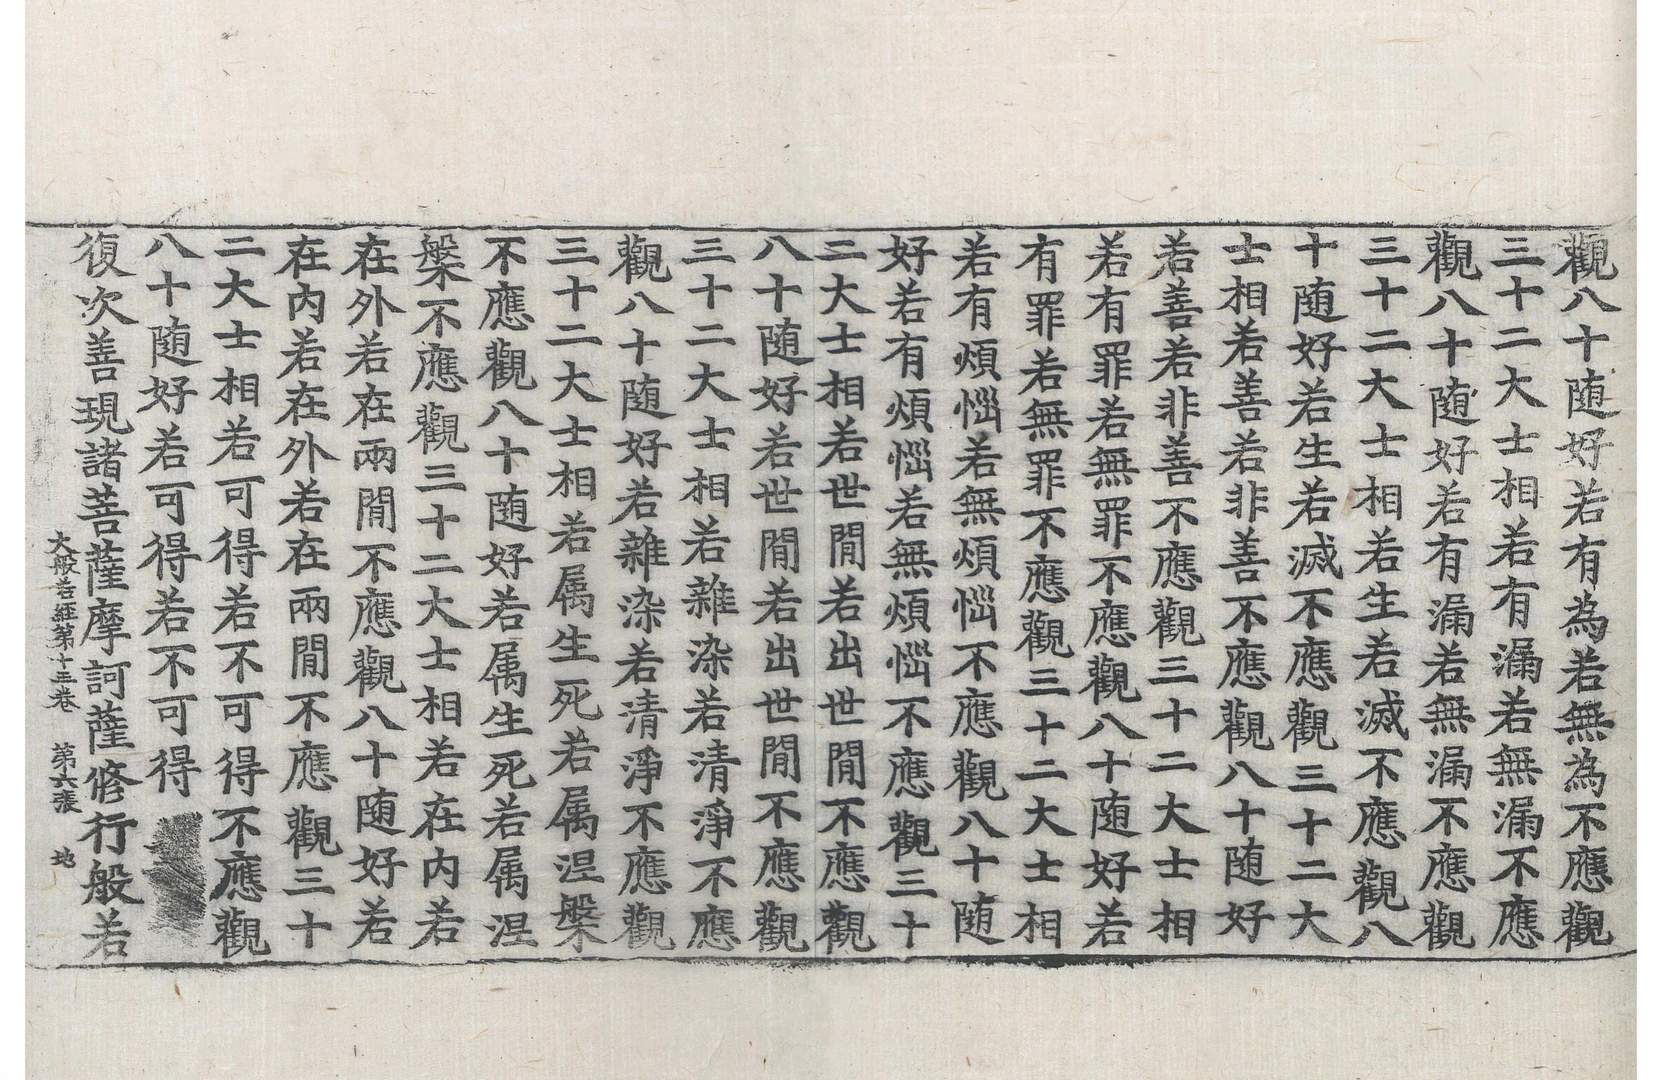 觀八十随好若有為若無為不應觀
三十二大士相若有漏若無漏不應
觀八十随好若有漏若無漏不應觀
三十二大士相若生若滅不應觀八
十随好若生若滅不應觀三十二大
士相若善若非善不應觀八十随好
若善若非善不應觀三十二大士相
若有罪若無罪不應觀八十随好若
有罪若無罪不應觀三十二大士相
若有煩惱若無煩惱不應觀八十随
好若有煩惱若無煩惱不應觀三十
二大士相若世間若出世間不應觀
八十随好若世間若出世間不應觀
三十二大士相若雜染若清淨不應
觀八十随好若雜染若清淨不應觀
三十二大士相若属生死若属涅槃
不應觀八十随好若属生死若属涅
槃不應觀三十二大士相若在內若
在外若在兩間不應觀八十随好若
在內若在外若在兩間不應觀三十
二大士相若可得若不可得不應觀
八十随好若可得若不可得
復次善現諸菩薩摩訶薩修行般若
大般若經第十三卷 第六張 地